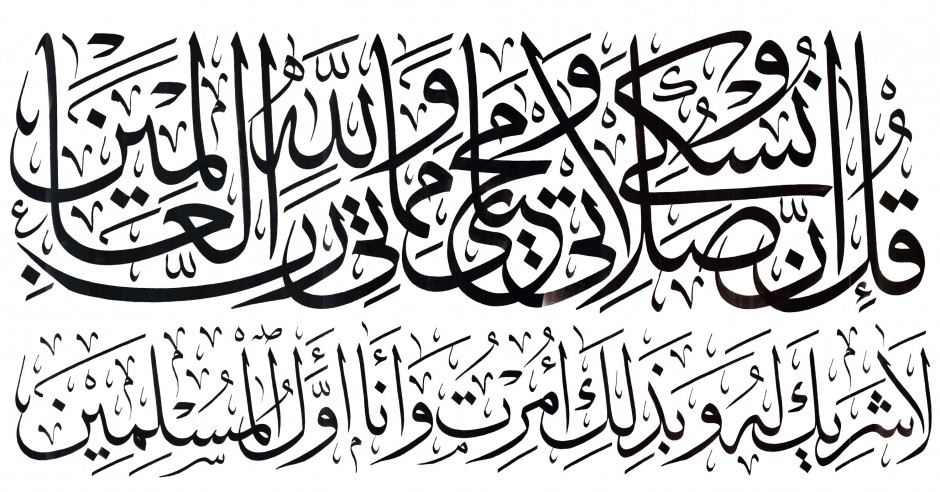 قُلْ إِنَّ صَلَاتِي وَنُسُكِي وَمَحْيَايَ وَمَمَاتِي لِلَّهِ رَبِّ الْعَالَمِينَ
لَا شَرِيكَ لَهُ وَبِذَلِكَ أُمِرْتُ وَأَنَا أَوَّلُ الْمُسْلِمِينَ